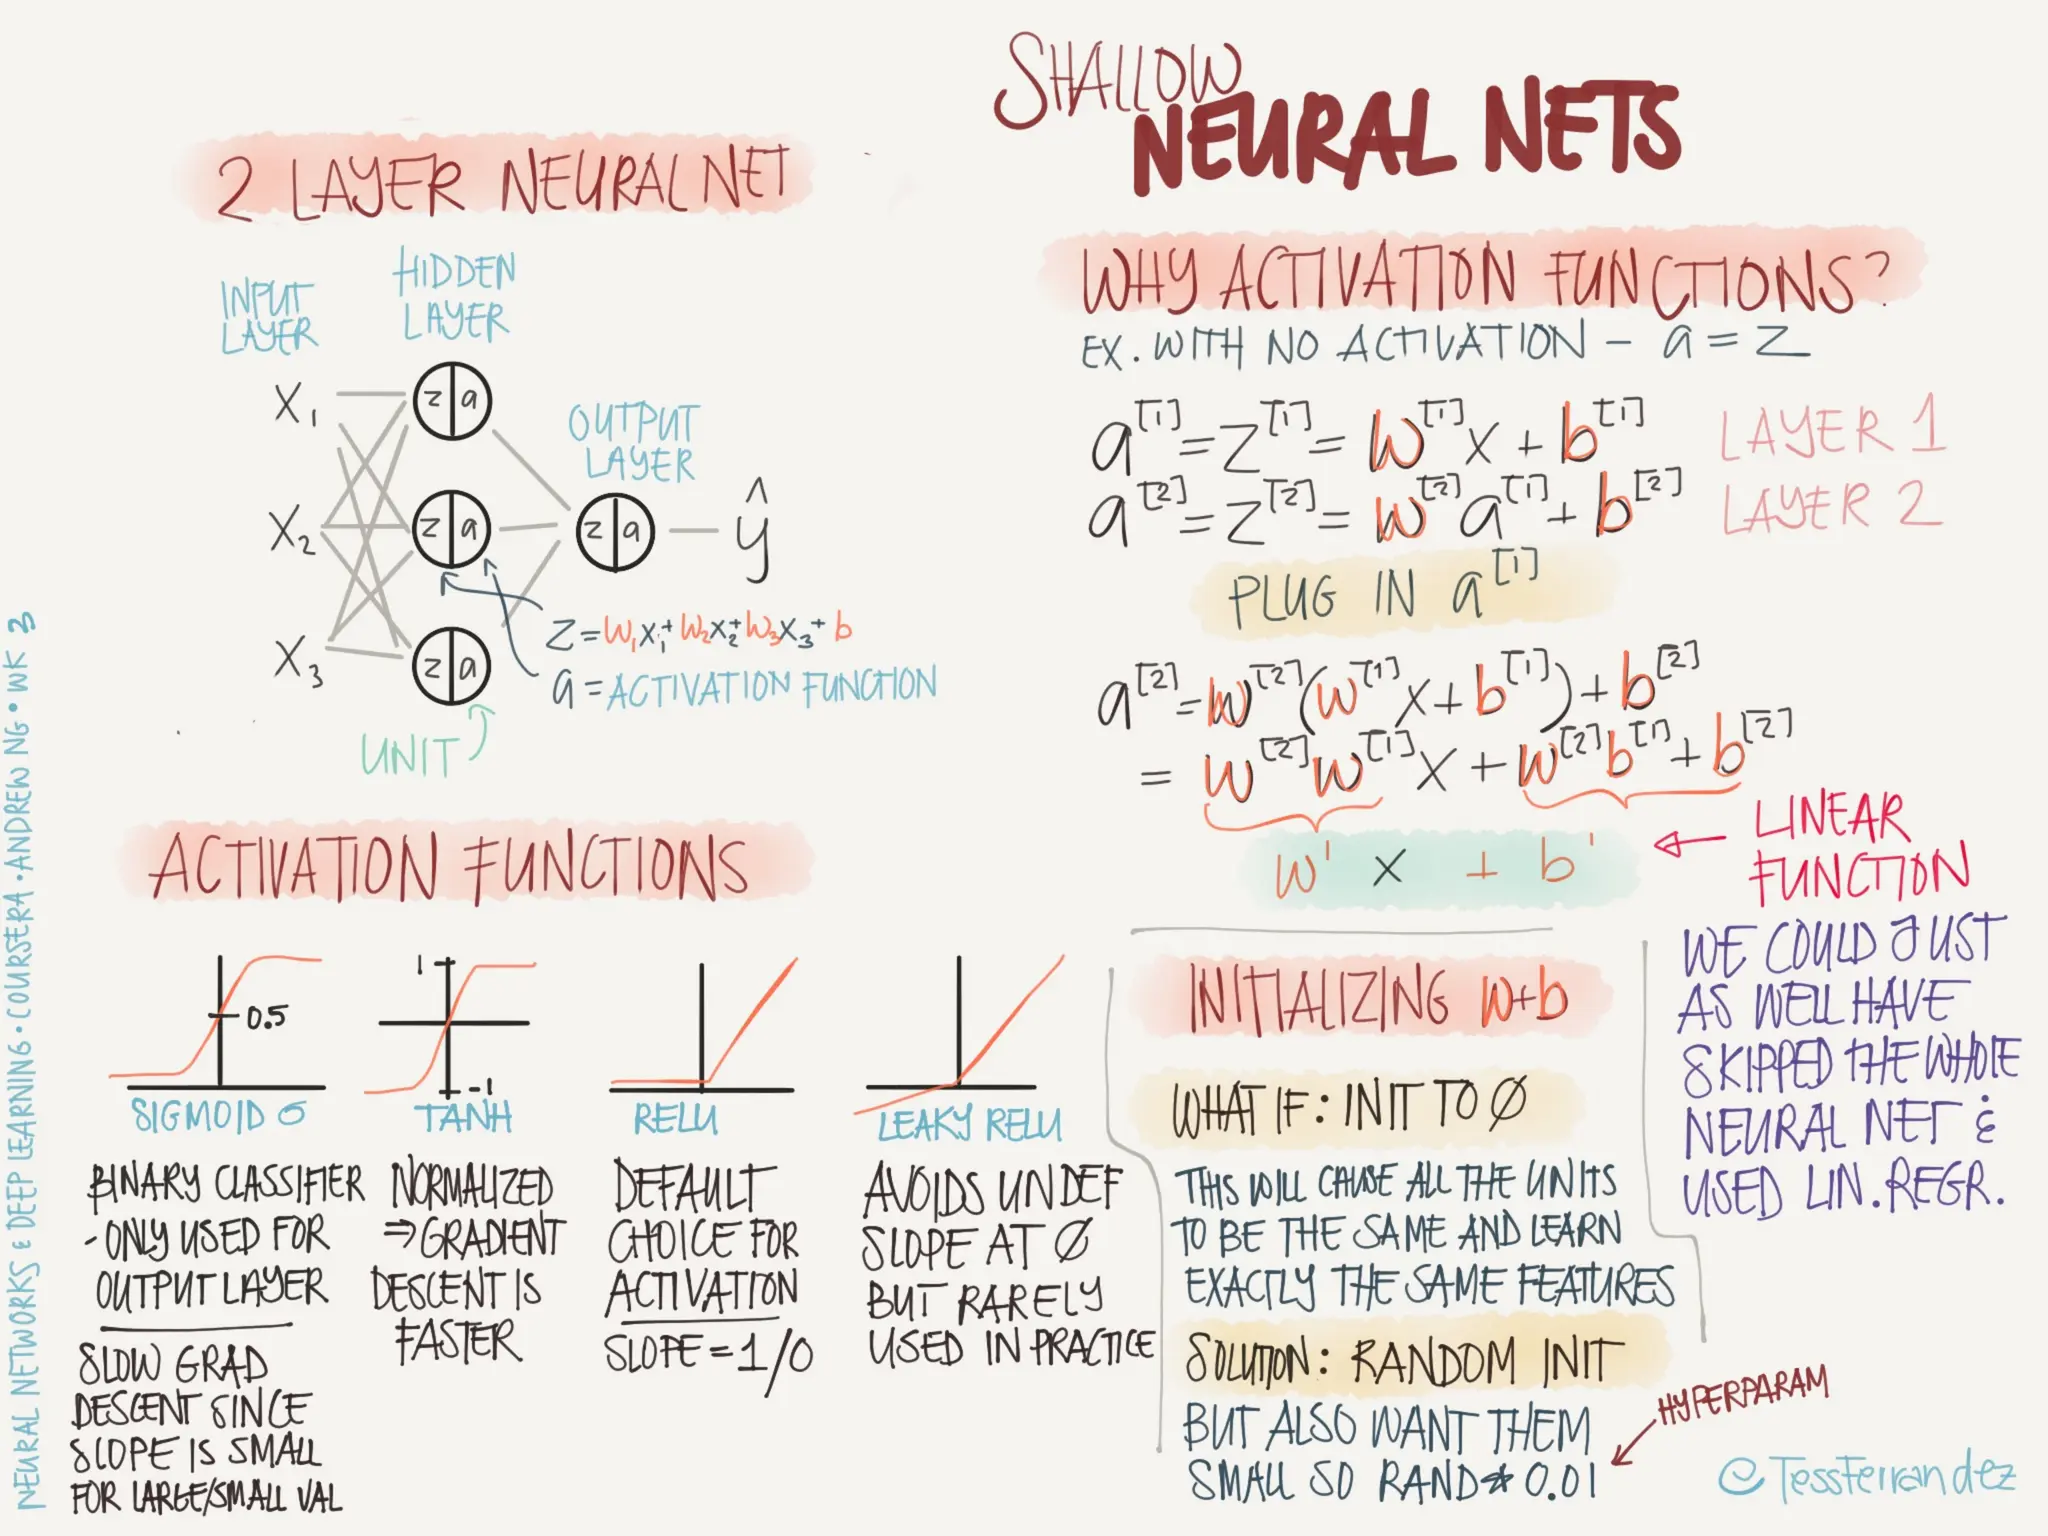 SHALLOW
NEURAL NETS
2 LAYER NEURAL NET
INPUT
LAYER
HIDDEN
LAYER
OUTPUT
LAYER
X₁
X₂
X₃
z|a
z|a
z|a
z|a
ŷ
Z=W₁X₁+W₂X₂+W₃X₃+b
a=ACTIVATION FUNCTION
UNIT
ACTIVATION FUNCTIONS
0.5
SIGMOID σ
BINARY CLASSIFIER
- ONLY USED FOR
OUTPUT LAYER
SLOW GRAD
DESCENT SINCE
SLOPE IS SMALL
FOR LARGE/SMALL VAL
1
-1
TANH
NORMALIZED
⇒GRADIENT
DESCENT IS
FASTER
RELU
DEFAULT
CHOICE FOR
ACTIVATION
SLOPE=1/0
LEAKY RELU
AVOIDS UNDEF
SLOPE AT Ø
BUT RARELY
USED IN PRACTICE
WHY ACTIVATION FUNCTIONS?
EX. WITH NO ACTIVATION - a=z
a[1]=z[1]=W[1]X+b[1] LAYER 1
a[2]=z[2]=W[2]a[1]+b[2] LAYER 2
PLUG IN a[1]
a[2]=W[2](W[1]X+b[1])+b[2]
=W[2]W[1]X+W[2]b[1]+b[2]
W' X + b'
LINEAR
FUNCTION
WE COULD JUST
AS WELL HAVE
SKIPPED THE WHOLE
NEURAL NET &
USED LIN. REGR.
INITIALIZING W+b
WHAT IF: INIT TO Ø
THIS WILL CAUSE ALL THE UNITS
TO BE THE SAME AND LEARN
EXACTLY THE SAME FEATURES
SOLUTION: RANDOM INIT
BUT ALSO WANT THEM
SMALL SO RAND * 0.01
HYPERPARAM
@TessFerrandez
NEURAL NETWORKS & DEEP LEARNING • COURSERA • ANDREW NG • WK 3